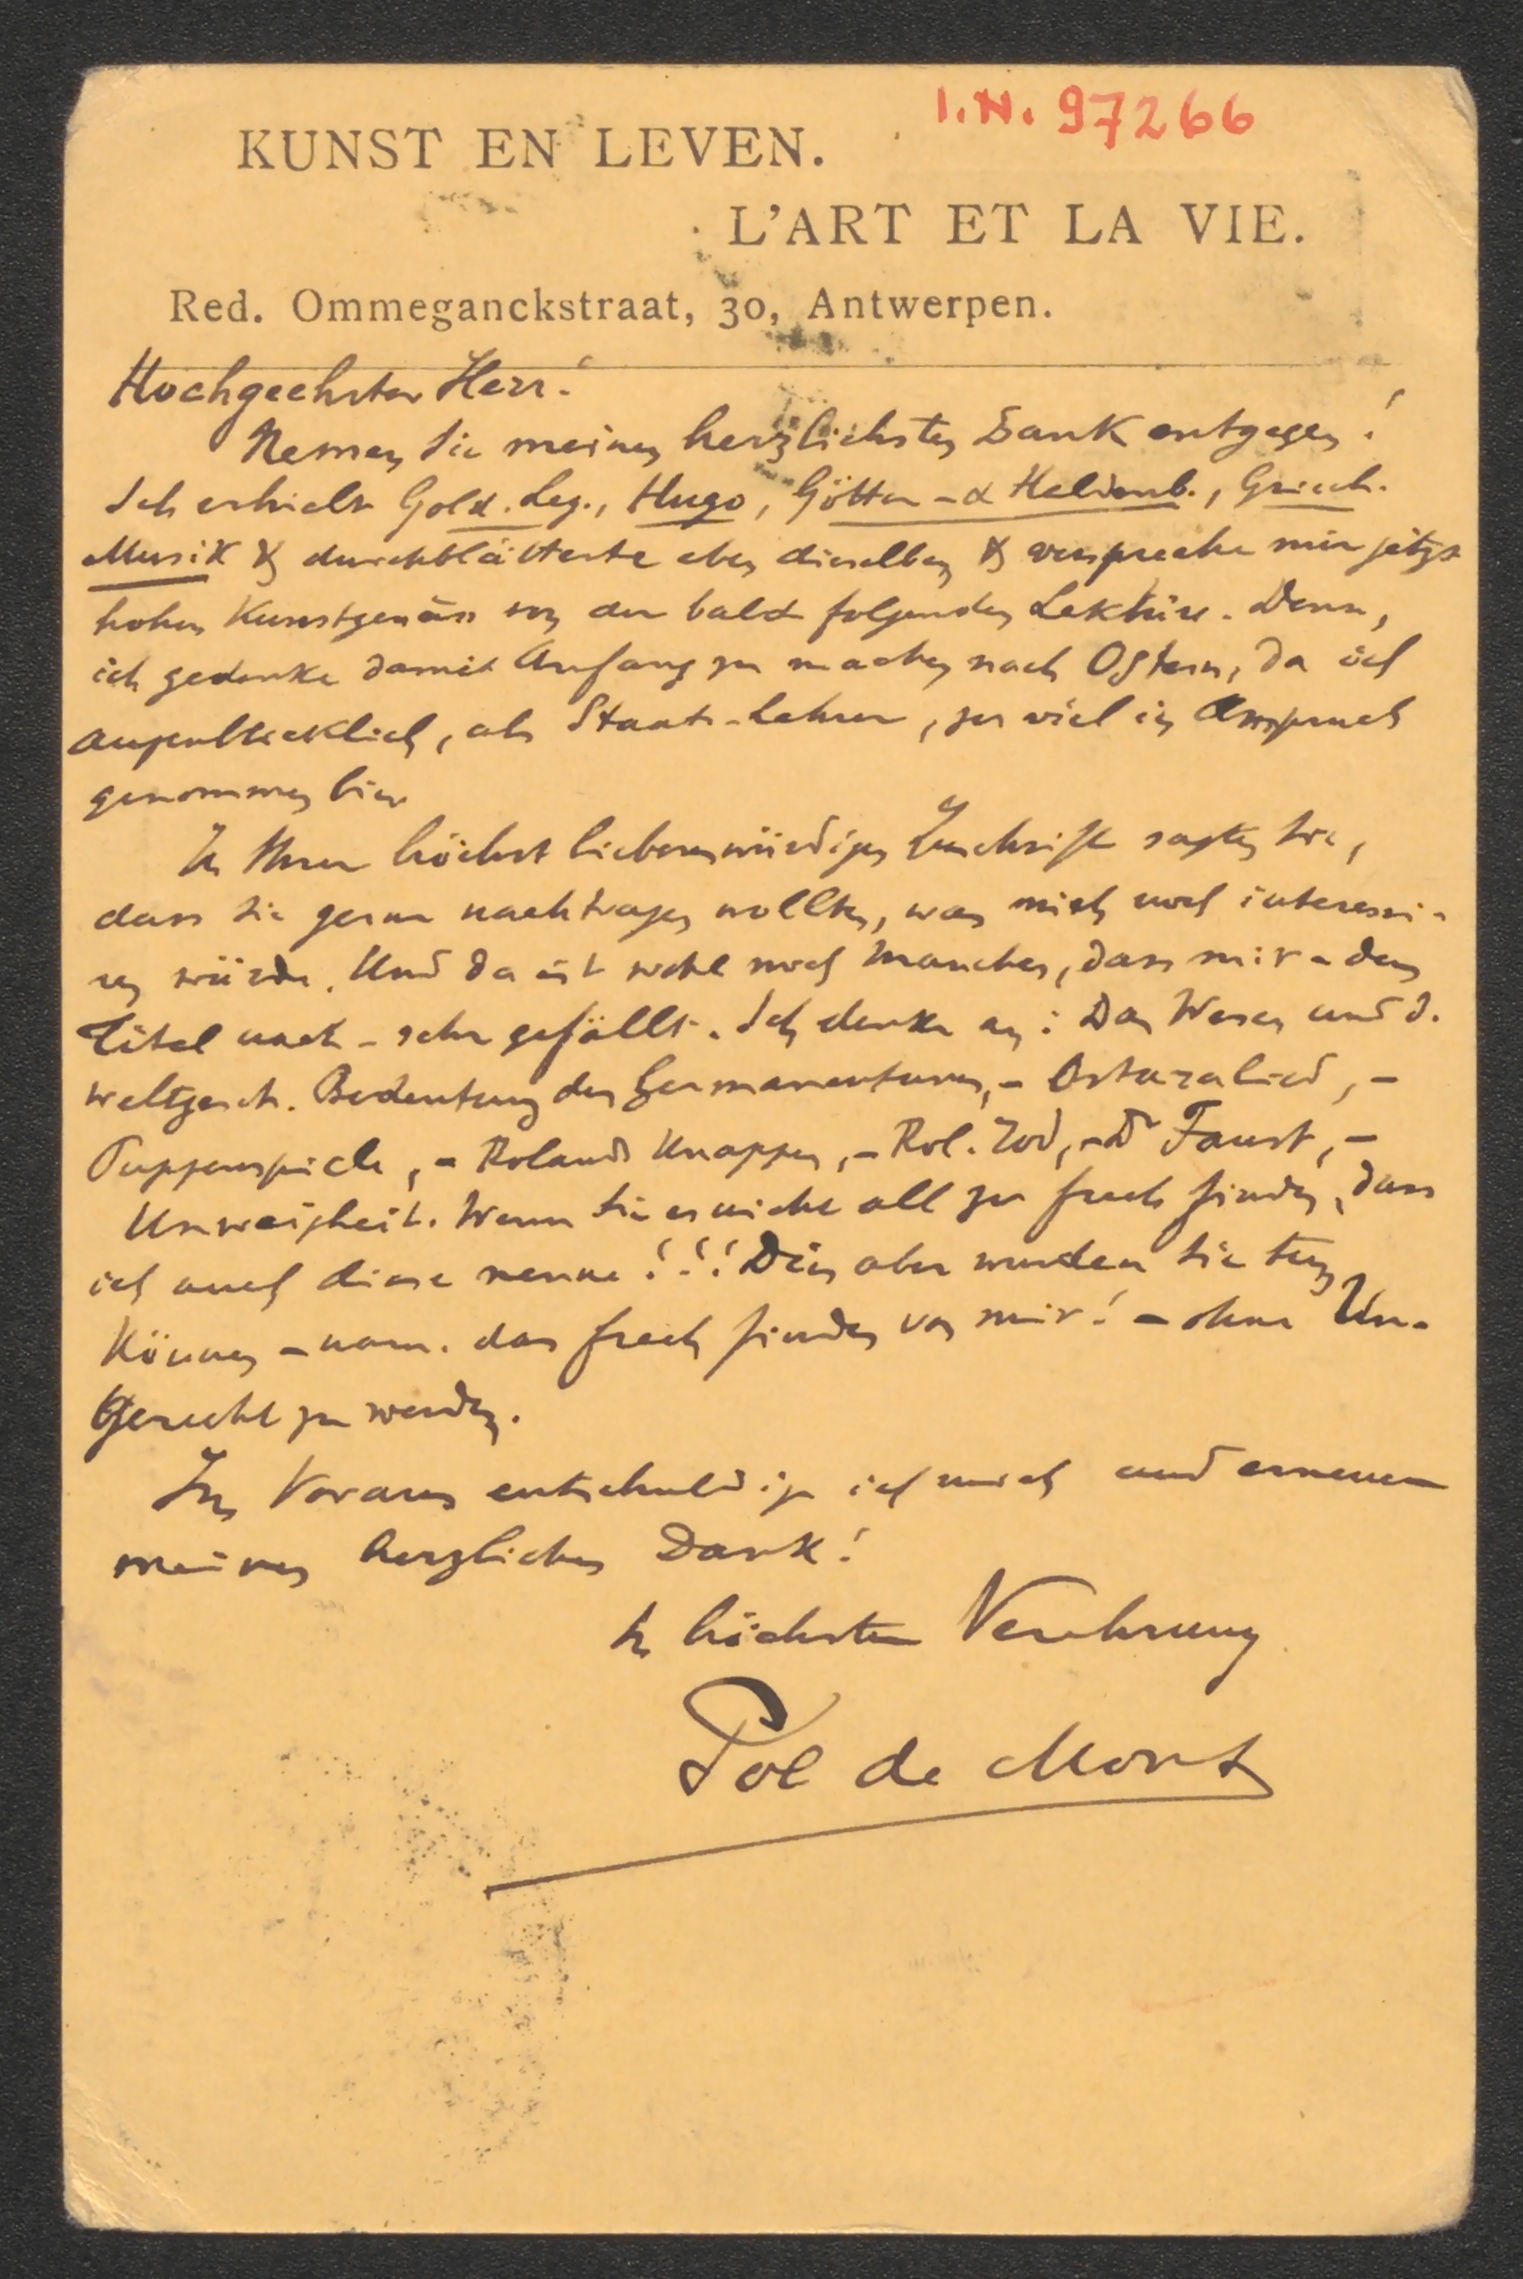 I.N. 97266
KUNST EN LEVEN.
L'ART ET LA VIE.
Red. Ommeganckstraat, 30, Antwerpen.
Hochgeehrter Herr!
Nemen Sie meinen herzlichsten Dank entgegen!
Ich erhielt Gold. Leg., Hugo, Götter- & Heldenb., Griech.
Musik & durchblätterte eben dieselben & verspreche mir jetzt
hohen Kunstgenuss von der bald folgenden Lektüre. Denn,
ich gedenke damit Anfang zu machen nach Ostern, da ich
augenblicklich, als Staats-Lehrer, zu viel in Anspruch
genommen bin.
In Ihrer höchst liebenswürdigen Zuschrift sagten Sie,
dass Sie gerne nachtragen wollten, was mich noch interessi-
ren würde. Und da ist wohl noch manches, dass mir - dem
Titel nach - sehr gefällt. Ich denke an: Das Wesen und d.
weltgesch. Bedeutung des Germanentums, - Ostaralied, -
Puppenspiele, - Rolands Knappen, - Rol. Tod, - Dr Faust, -
Unweisheit. Wenn Sie es nicht all zu frech finden, dass
ich auch diese nenne!!! Dies aber wurden Sie tun
können - nam. das frech finden von mir! - ohne Un-
Gerecht zu werden.
Im Voraus entschuldige ich mich und erneuere
meinen herzlichen Dank!
In höchster Verehrung
Pol de Mont